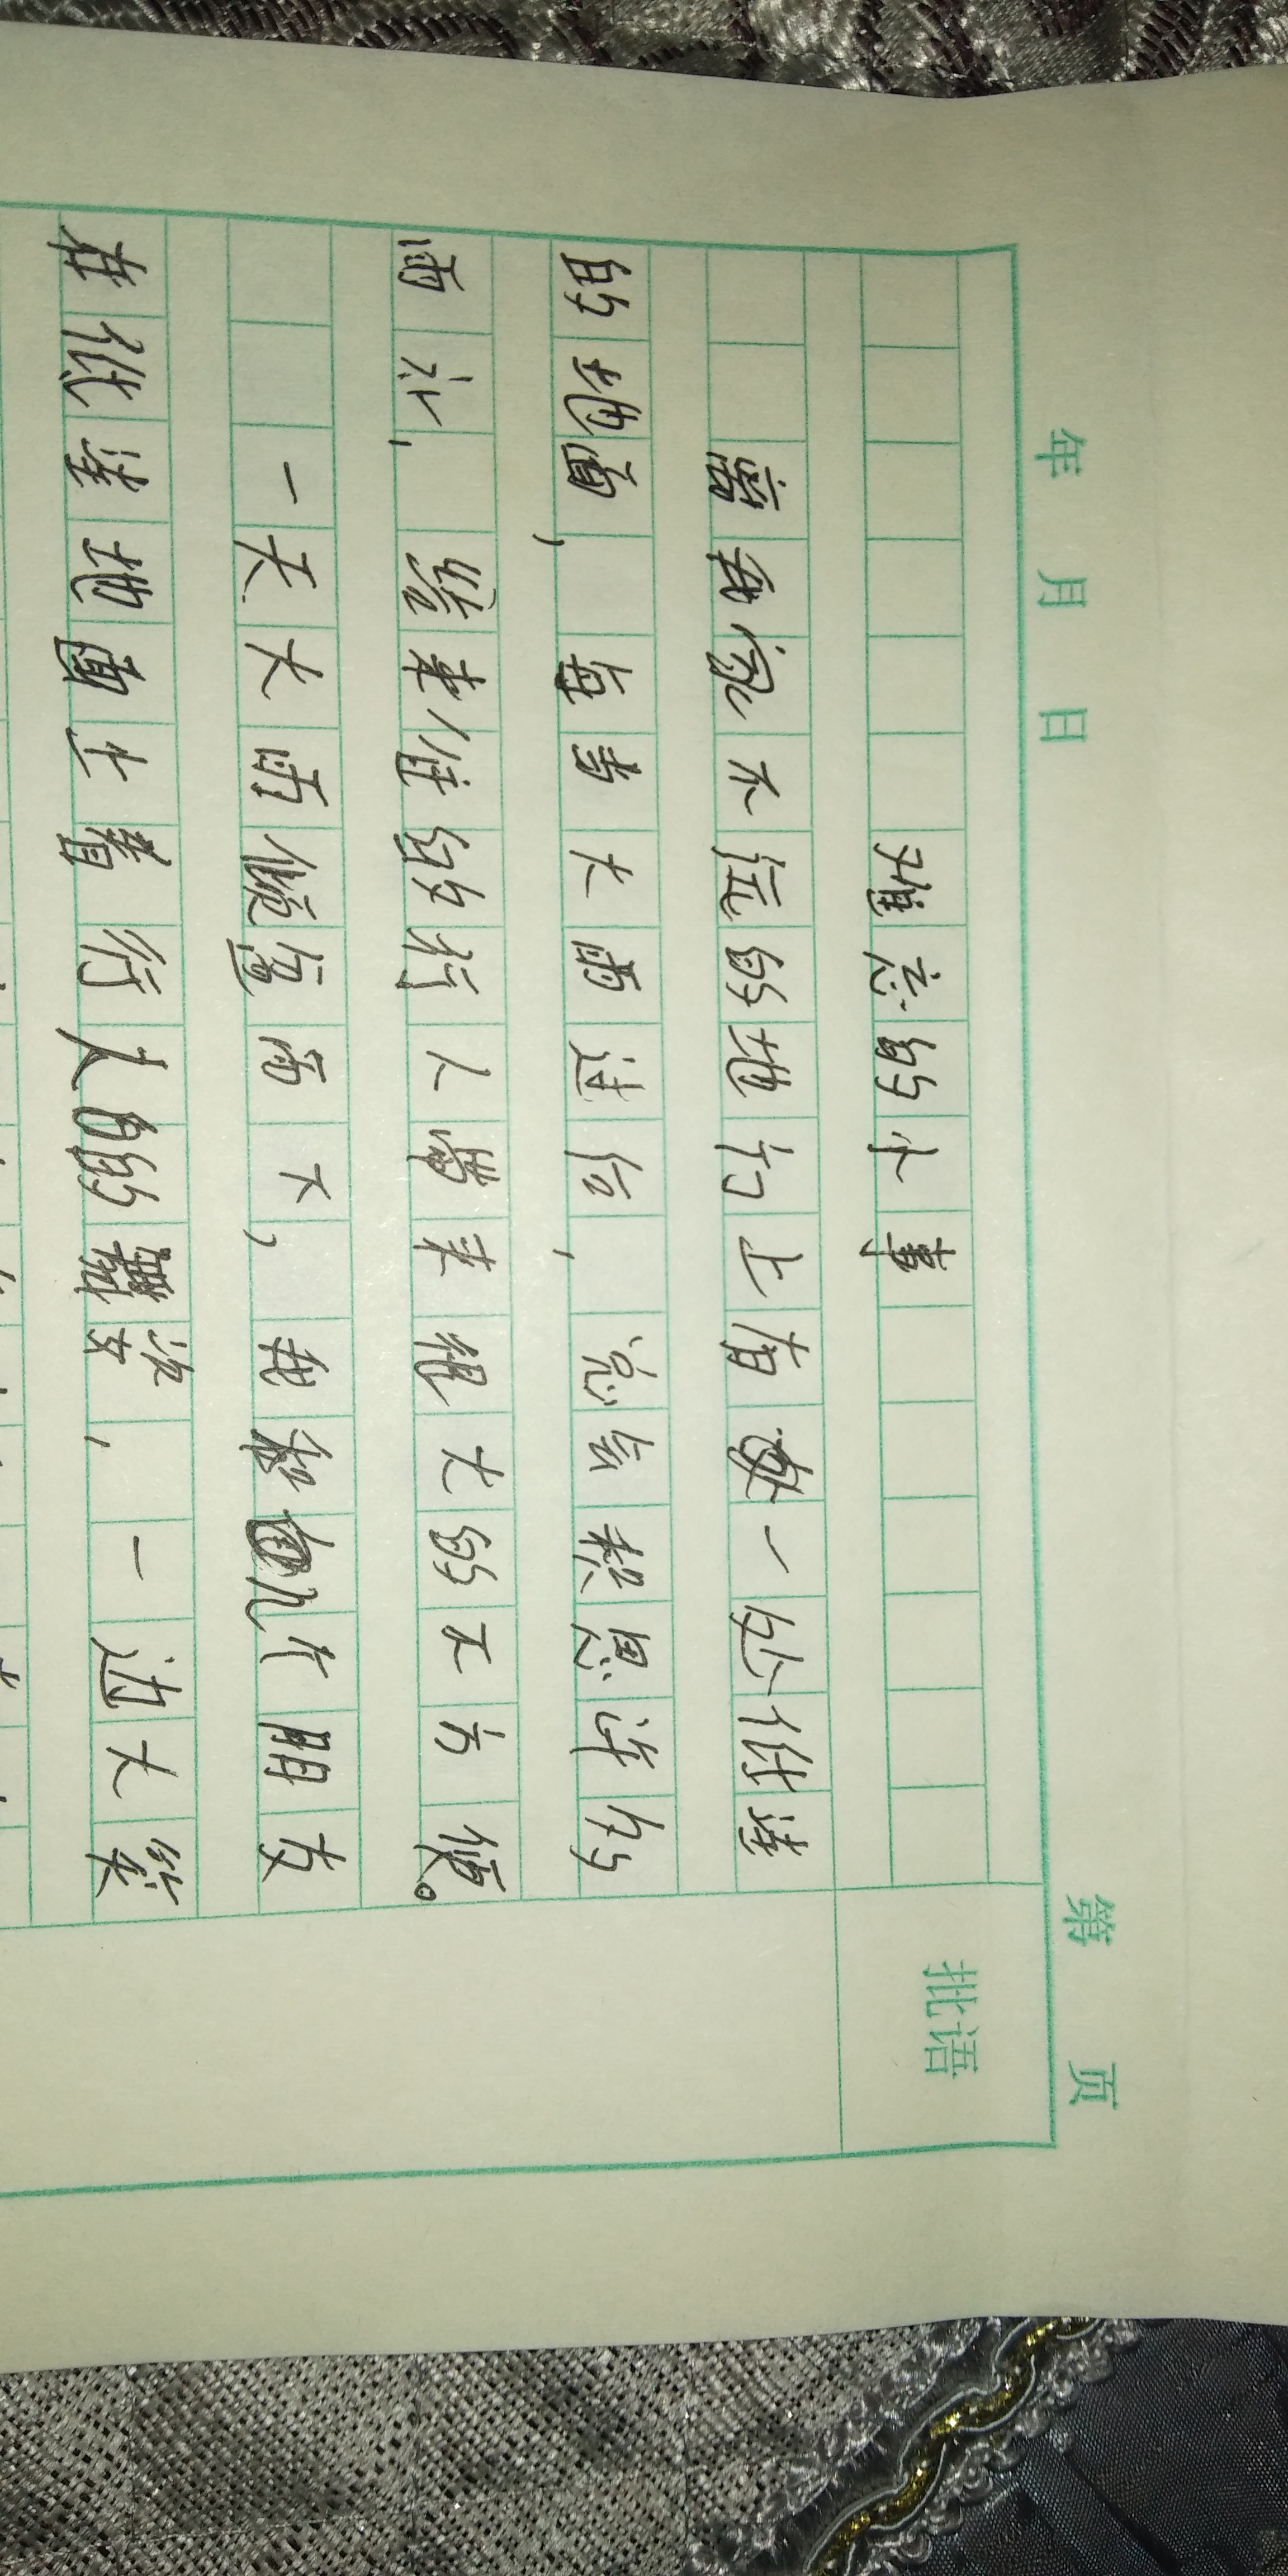 年 月 日 第 页
批语
难忘的小事
离我家不远的地方上有一处低洼
的地面，每当大雨过后，总会积思许多
雨水，给来往的行人带来很大的不方便。
一天大雨倾盆而下，我和几个朋友
在低洼地面上看行人的姿，一边大笑